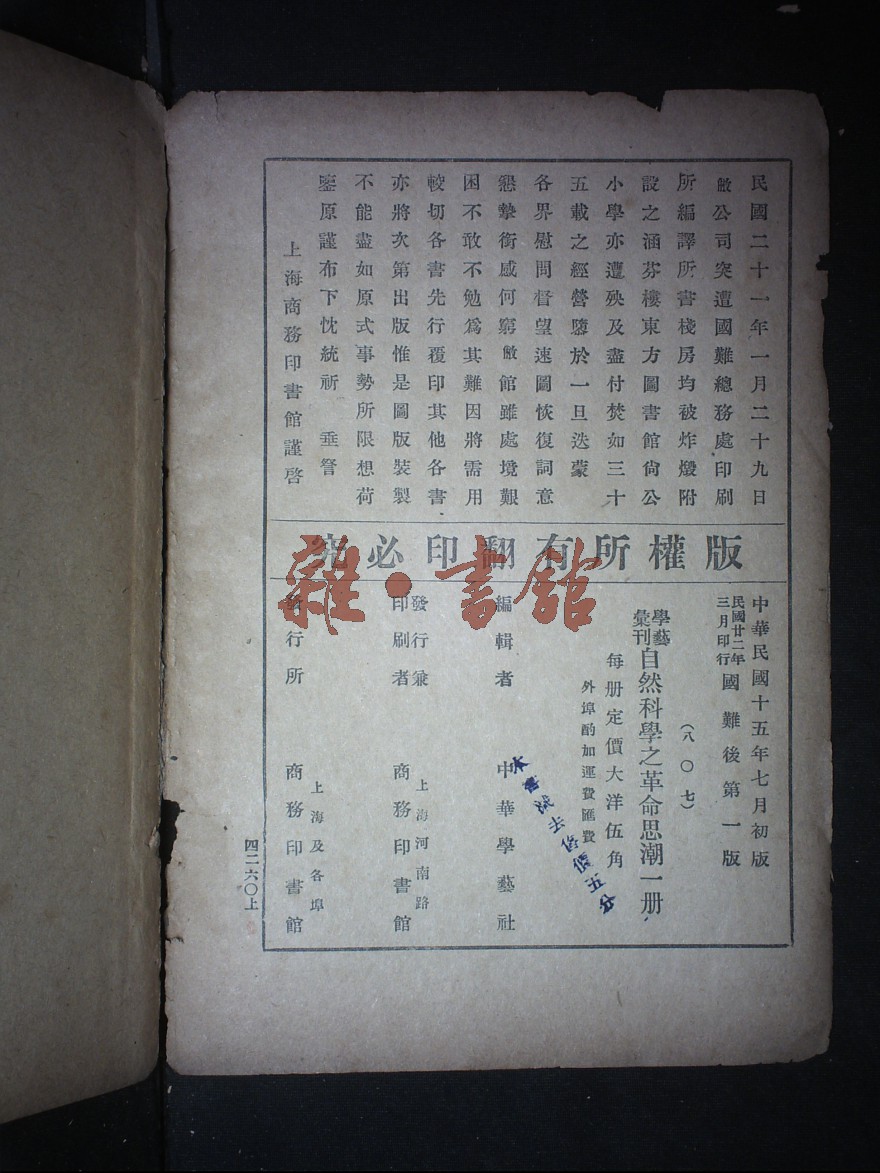 民國二十一年一月二十九日
敝公司突遭國難總務處印刷
所編譯所書棧房均被炸燬附
設之涵芬樓東方圖書館尙公
小學亦遭殃及盡付焚如三十
五載之經營隳於一旦迭蒙
各界慰問督望速圖恢復詞意
懇摯銜感何窮敝館雖處境艱
困不敢不勉爲其難因將需用
較切各書先行覆印其他各書
亦將次第出版惟是圖版裝製
不能盡如原式事勢所限想荷
鑒原謹布下忱統祈 垂詧
上海商務印書館謹啓
版權所有翻印必究
中華民國十五年七月初版
民國廿二年三月印行國難後第一版
(八〇七)
學藝彙刊自然科學之革命思潮一册
每册定價大洋伍角
外埠酌加運費匯費
編輯者 中華學藝社
發行兼印刷者 上海河南路 商務印書館
發行所 上海及各埠 商務印書館
本書減去售價五分
四二六〇上
雜·書館